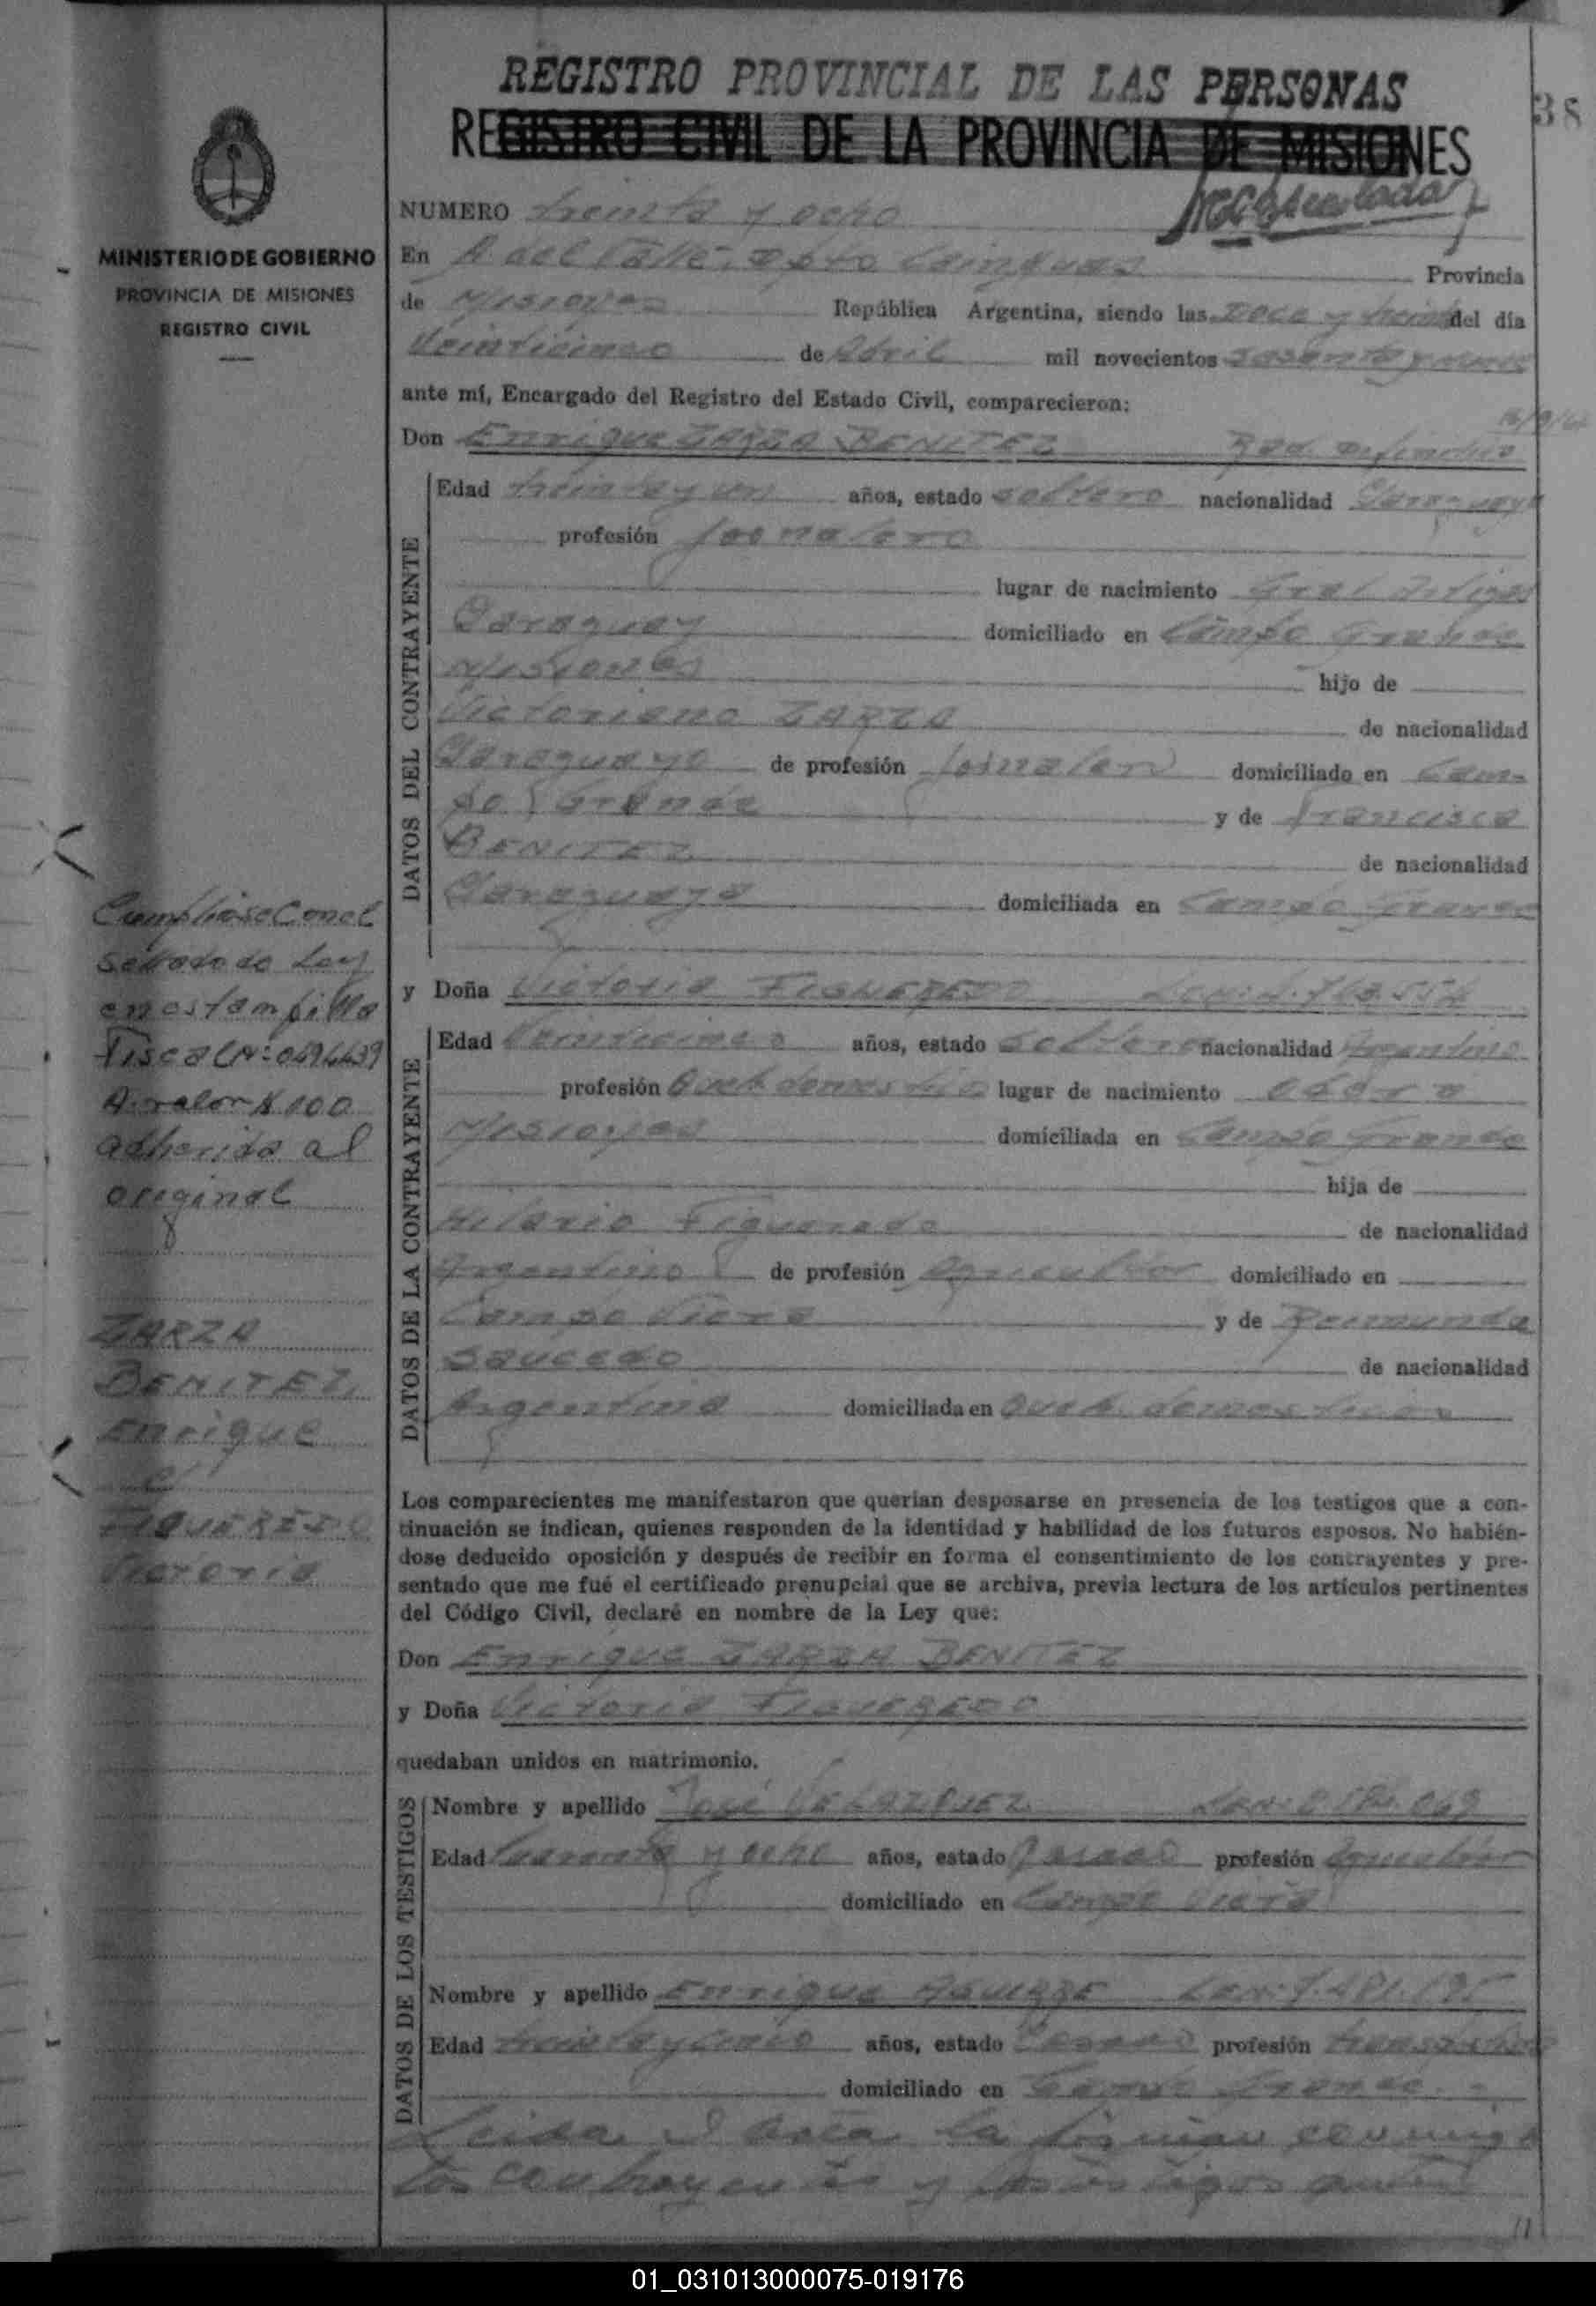 REGISTRO PROVINCIAL DE LAS PERSONAS
REGISTRO CIVIL DE LA PROVINCIA DE MISIONES
38
MINISTERIO DE GOBIERNO
PROVINCIA DE MISIONES
REGISTRO CIVIL
NUMERO treinta y ocho
En A. del Valle, Dpto Cainguas Provincia
de Misiones República Argentina, siendo las Doce y treinta del día
Veinticinco de Abril mil novecientos sesenta y nueve
ante mí, Encargado del Registro del Estado Civil, comparecieron:
Don Enrique ZARZA BENITEZ
DATOS DEL CONTRAYENTE
Edad treinta y un años, estado soltero nacionalidad Paraguaya
profesión Jornalero
lugar de nacimiento Gral Artigas
Paraguay domiciliado en Campo Grande
Misiones hijo de
Victoriano ZARZA de nacionalidad
Paraguayo de profesión Jornalero domiciliado en Cam-
po Grande y de Francisca
BENITEZ de nacionalidad
Paraguaya domiciliada en Campo Grande
y Doña Victoria FIGUEREDO
DATOS DE LA CONTRAYENTE
Edad Veinticinco años, estado soltera nacionalidad Argentina
profesión Queh domestico lugar de nacimiento Oberá
Misiones domiciliada en Campo Grande
hija de
Hilario Figueredo de nacionalidad
Argentino de profesión Agricultor domiciliado en
Campo Viera y de Raimunda
Saucedo de nacionalidad
Argentina domiciliada en Queh. domesticos
Cumpliose Con el
Sellado de Ley
en estampilla
Fiscal Nº: 0694439
A. valor $ 100
adherida al
original
ZARZA
BENITEZ,
Enrique
c/
FIGUEREDO
Victoria
Los comparecientes me manifestaron que querían desposarse en presencia de los testigos que a con-
tinuación se indican, quienes responden de la identidad y habilidad de los futuros esposos. No habién-
dose deducido oposición y después de recibir en forma el consentimiento de los contrayentes y pre-
sentado que me fué el certificado prenupcial que se archiva, previa lectura de los artículos pertinentes
del Código Civil, declaré en nombre de la Ley que:
Don Enrique ZARZA BENITEZ
y Doña Victoria FIGUEREDO
quedaban unidos en matrimonio.
DATOS DE LOS TESTIGOS
Nombre y apellido José VELAZQUEZ
Edad Cuarenta y ocho años, estado Casado profesión Agricultor
domiciliado en Campo Viera
Nombre y apellido Enrique AGUIRRE
Edad treinta y cinco años, estado Casado profesión
domiciliado en Campo Grande
Leida el Acta la firman conmigo
los contrayentes y los testigos
01_031013000075-019176